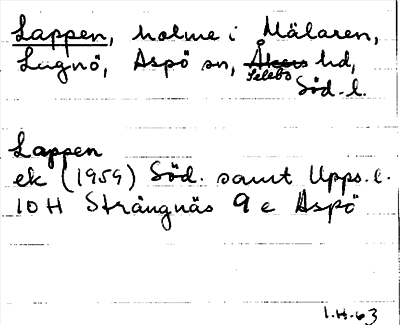 Lappen, holme i Mälaren,
Lagnö, Aspö sn, Åkers hd,
Selebo
Söd. l.
Lappen
ek (1959) Söd. samt Upps. l.
10 H Strängnäs 9 e Aspö
1.H.63